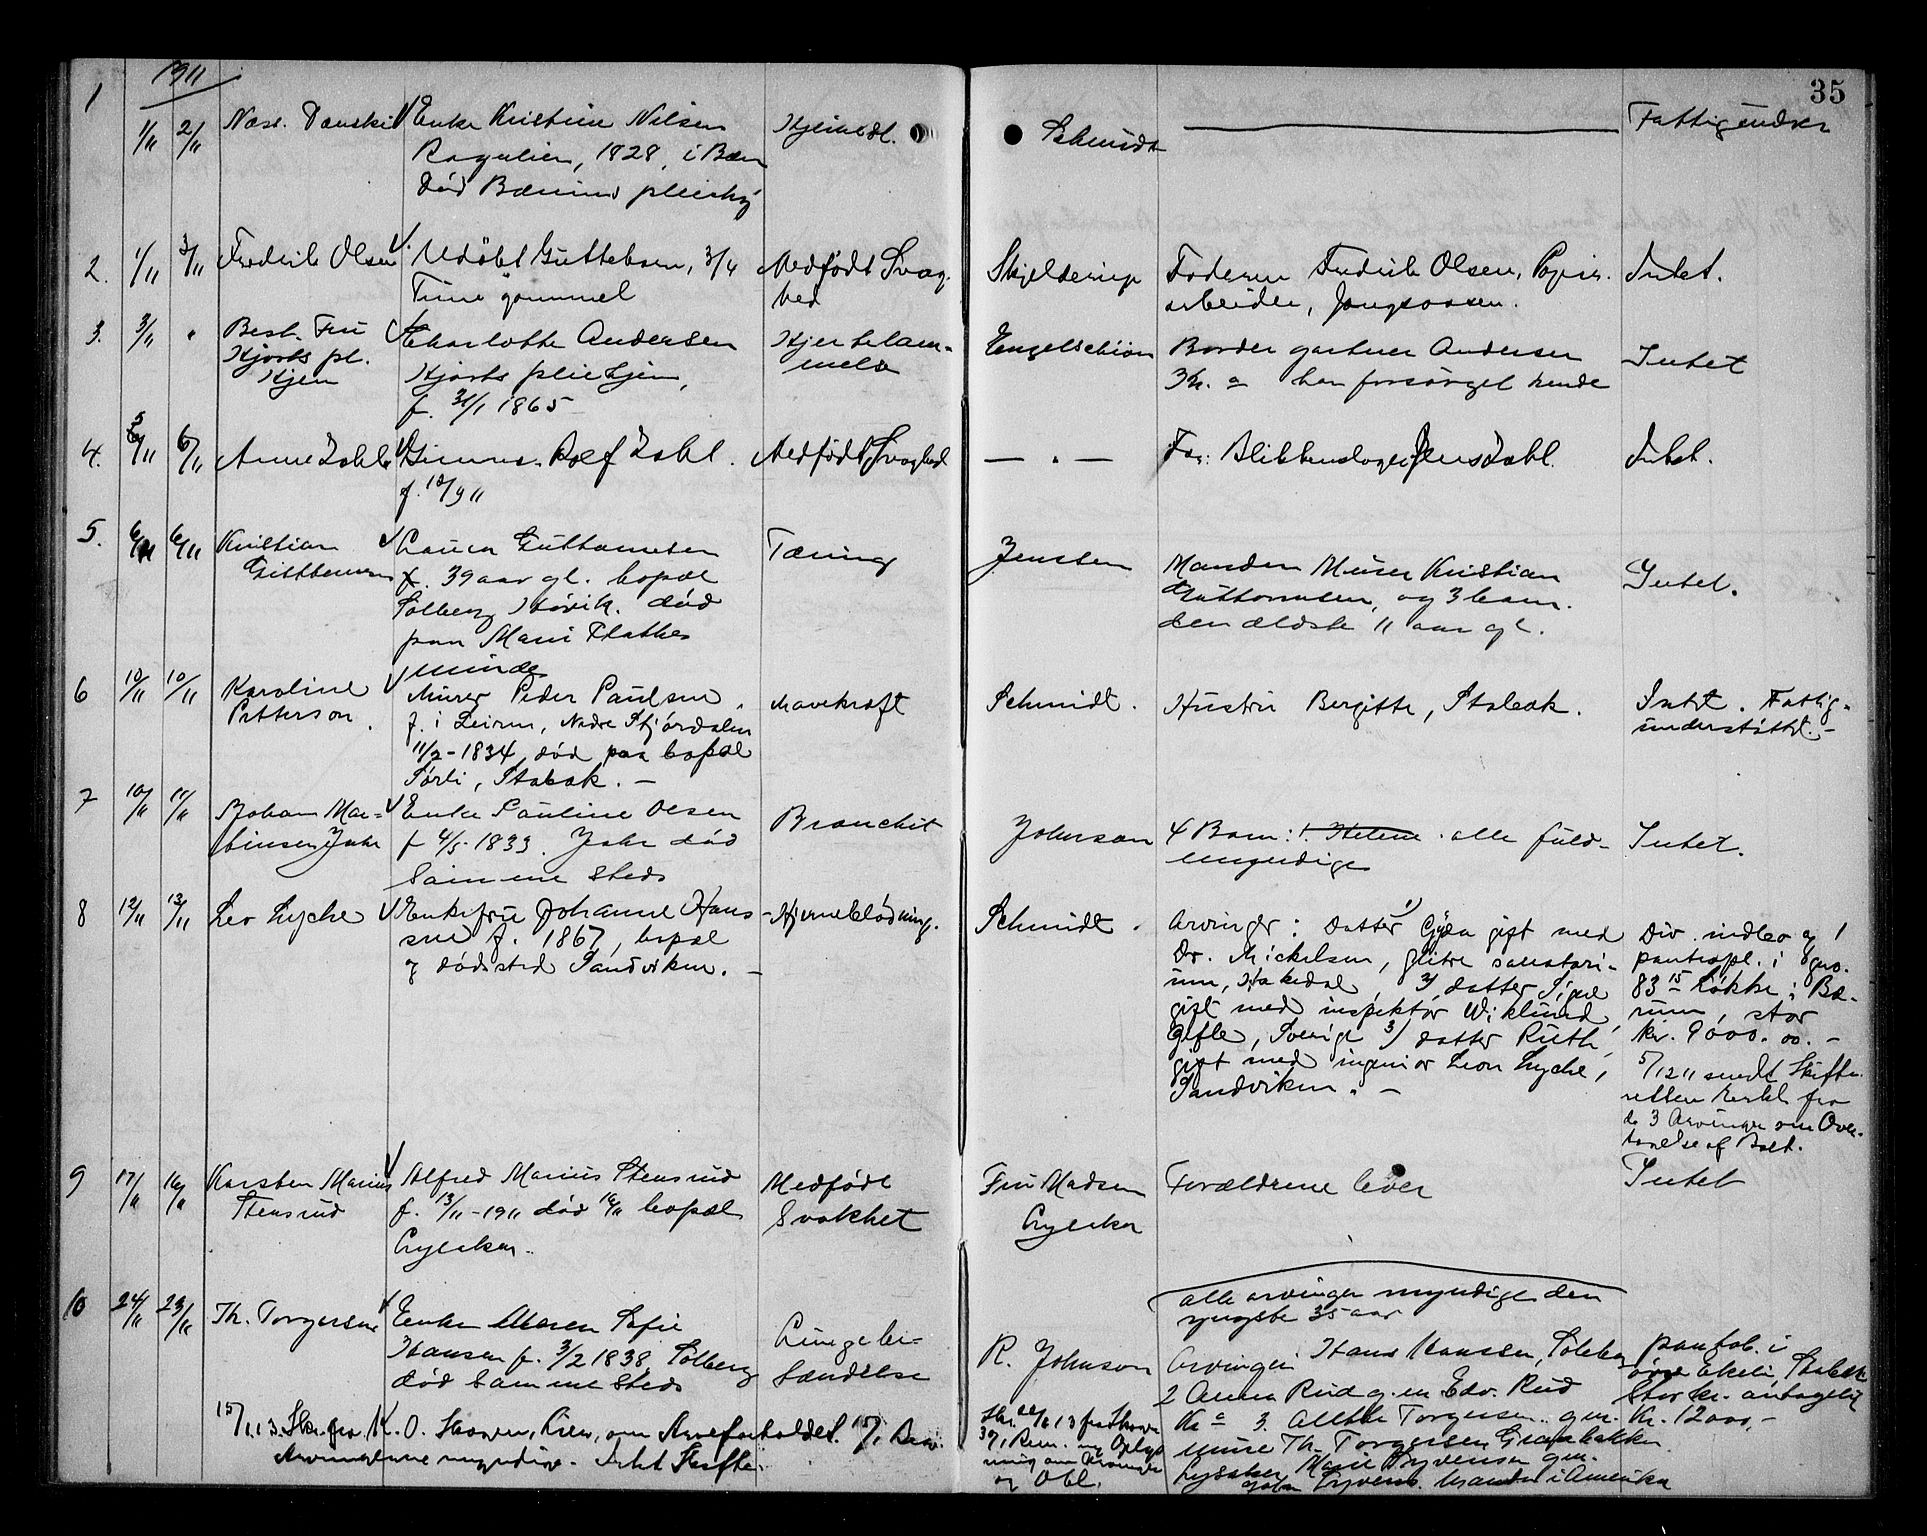 35
1911
1
1/11 2/11
Enke Kristine Nilsen
1828, i Bærum
Død Bærums pleiehj.
Schmidt
2. 1/11 3/11 Fredrik Olsen
Udøbt Guttebarn, 3/4
Time gammel
Medfødt Svag-
hed
Skjelderup
Faderen Fredrik Olsen, Papir-
arbeider,
Intet.
3. 3/11 "
Best. Fru
Hjorts pl.
Hjem
Charlotte Andersen
Hjorts pleiehjem,
f. 31/1 1865
Engelschiøn
Broder gartner Andersen
har forsørget hende
Intet
4. 5/11 6/11 Anne Dahl
Rolf Dahl.
f. 10/9 11
Medfødt Svaghed
— " —
Far: Blikkenslager Jens Dahl.
Intet.
5. 6/11 6/11 Kristian
Guttormsen
Laura Guttormsen
f. 39 aar gl. bopæl
Solberg Høvik. død
paa Marie Plathes
minde
Tæring
Jensen
Manden Murer Kristian
Guttormsen, og 3 barn.
den ældste 11 aar gl.
Intet.
6 10/11 10/11 Karoline
Petterson.
Murer Peder Paulsen,
f. i Leiren, Nedre Stjørdalen
11/2 - 1834, død paa bopæl
Sørli, Stabæk. —
Mavekræft
Schmidt.
Hustru Bergitte, Stabæk.
Intet. Fattig-
understøttet. —
7 10/11 11/11 Johan Mar-
tinsen Jahr
Enke Pauline Olsen
f 4/5 1833. Jahr død
samme steds
Bronchit
Johnson
4 Barn: 1. Helene. alle fuld-
myndige
Intet.
8 12/11 13/11 Leo Lyche
Enkefru Johanne Han-
sen f. 1867, bopæl
og dødssted Sandviken. —
Hjerneblødning.
Schmidt.
Arvinger: 1) Datter Gyda gift med
Dr. Mickelsen, Glitre sanatori-
um, Hakedal, 2) datter Sigrd
gift med inspektør Wiklund,
Gefle, Sverige 3) datter Ruth,
gift med ingeniør Leon Lyche,
Sandviken. —
Div. indbo og 1
panteobl. i gno.
83 15 Løkke i Bæ-
rum, stor
kr. 9000.00. —
5/12 11 sendt Skifte-
retten Erkl. fra
de 3 Arvinger om Over-
tagelse af Boet.
9 17/11 16/11 Karsten Marius
Stensrud
Alfred Marius Stensrud
f. 13/11 - 1911 død 16/11 bopæl
Lysaker.
Medfødt
Svakhet
Fru Madsen
Lysaker
Forældrene lever
Intet
10 24/11 23/11 Th. Torgersen
Enke Maren Sofie
Hansen f. 3/2 1838 Solberg
død samme steds
Lungebe-
tændelse
R. Johnson
alle arvinger myndige den
yngste 35 aar
Arvinger Hans Hanssen, Solberg
2 Anna Rud g. m Edv. Rud
3. Torgersen gm.
Th. Torgersen
Lysaker Marie Syvertsen gm.
i Amerika
pantob. i
øvre Ekeli, Stabæk
stor kr. antagelig
Kr. 12000,-
15/1 13. Skr. fra K. O. om Arveforholdet.
Arvingerne myndige. Intet Skifte.
og Obl.